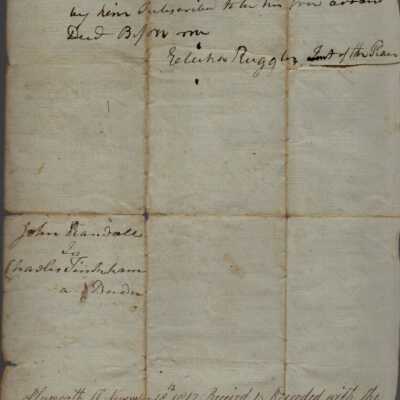 by him Subscribed to be his free act and
Deed Before me
Ruggles Just of the Peace
John Randall
To
Charles Tinkham
a Deed
Plymouth Ss November 18th Received & Recorded with the